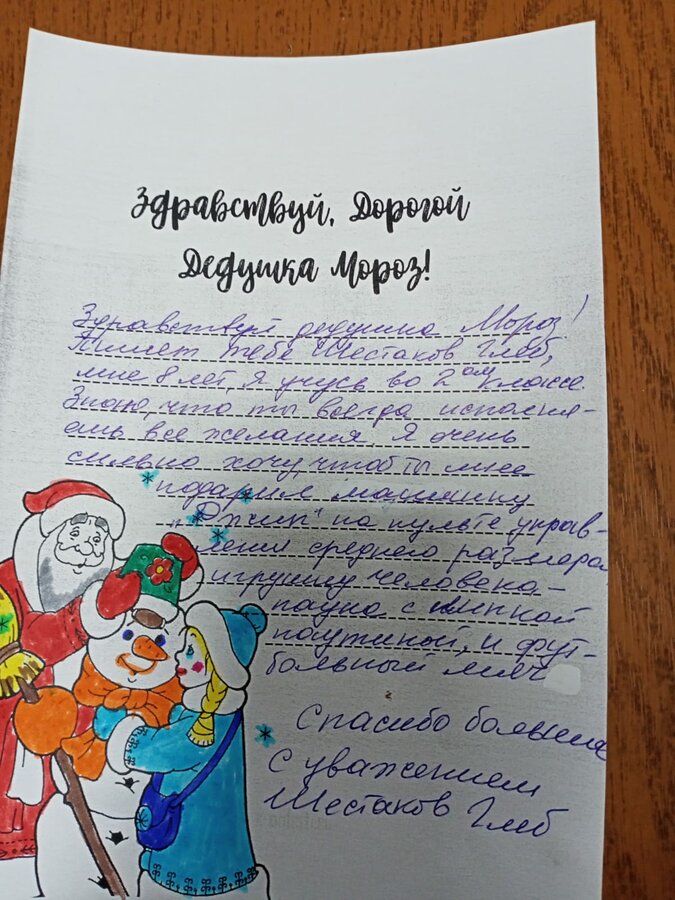 Здравствуй, Дорогой
Дедушка Мороз!
Здравствуй дедушка Мороз!
Пишет тебе Шестаков Глеб,
мне 8 лет, я учусь во 2ом классе.
Знаю, что ты всегда исполня-
ешь все желания. Я очень
сильно хочу, чтоб ты мне
подарил машинку
"Джип" на пульте управ-
ления среднего размера
игрушку человека-
паука с липкой
паутиной, и фут-
больный мяч
Спасибо большое
С уважением
Шестаков Глеб